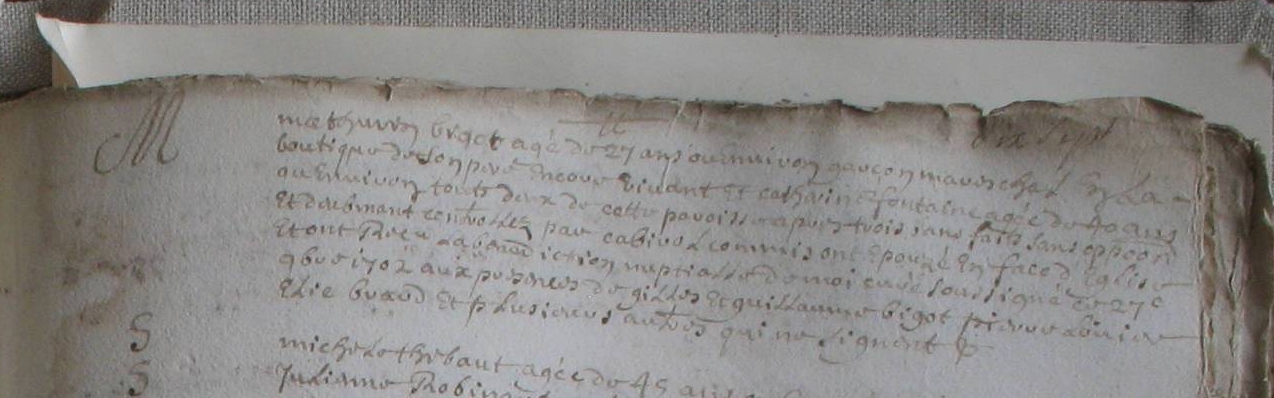 dix sept
M mathurin bigot agé de 27 ans ou Enuiron garçon mareschal En La
boutique de son pere Encore viuant Et catherine fontaine agée de 40 ans
ou Enuiron touts deux de cette paroisse apres trois bans faits sans oppoon
Et deubmant controllez par cabirol commis ont Epouzé En face d Eglise
Et ont Receu La benediction nuptialle de moi curé soussigné ce 27e
9bre 1702 aux presences de gilles Et guillaume bigot pierre
Elie braud Et plusieurs autres qui ne signent
S michele thebaut agée de 45 ans
S Julianne Robin